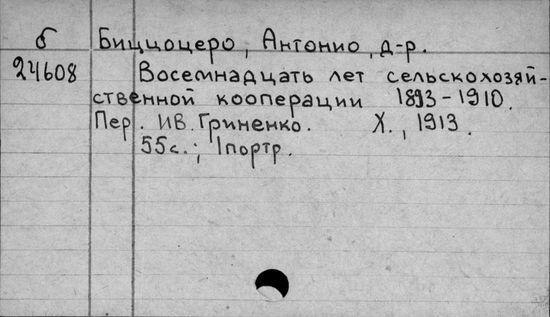 б Биццоцеро, Антонио, д-р.
24608 Восемнадцать лет сельскохозяй-
ственной кооперации 1893-1910.
Пер. ИВ. Гриненко. Х., 1913.
55с.; 1портр.